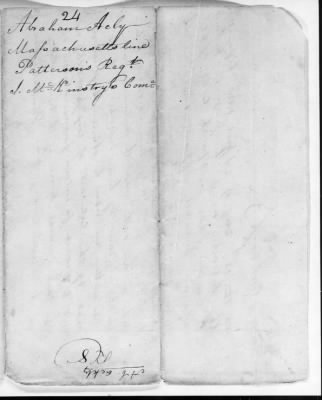 24
Abraham Acly
Massachusetts line
Patterson's Regt
J. McKinstry's Comy